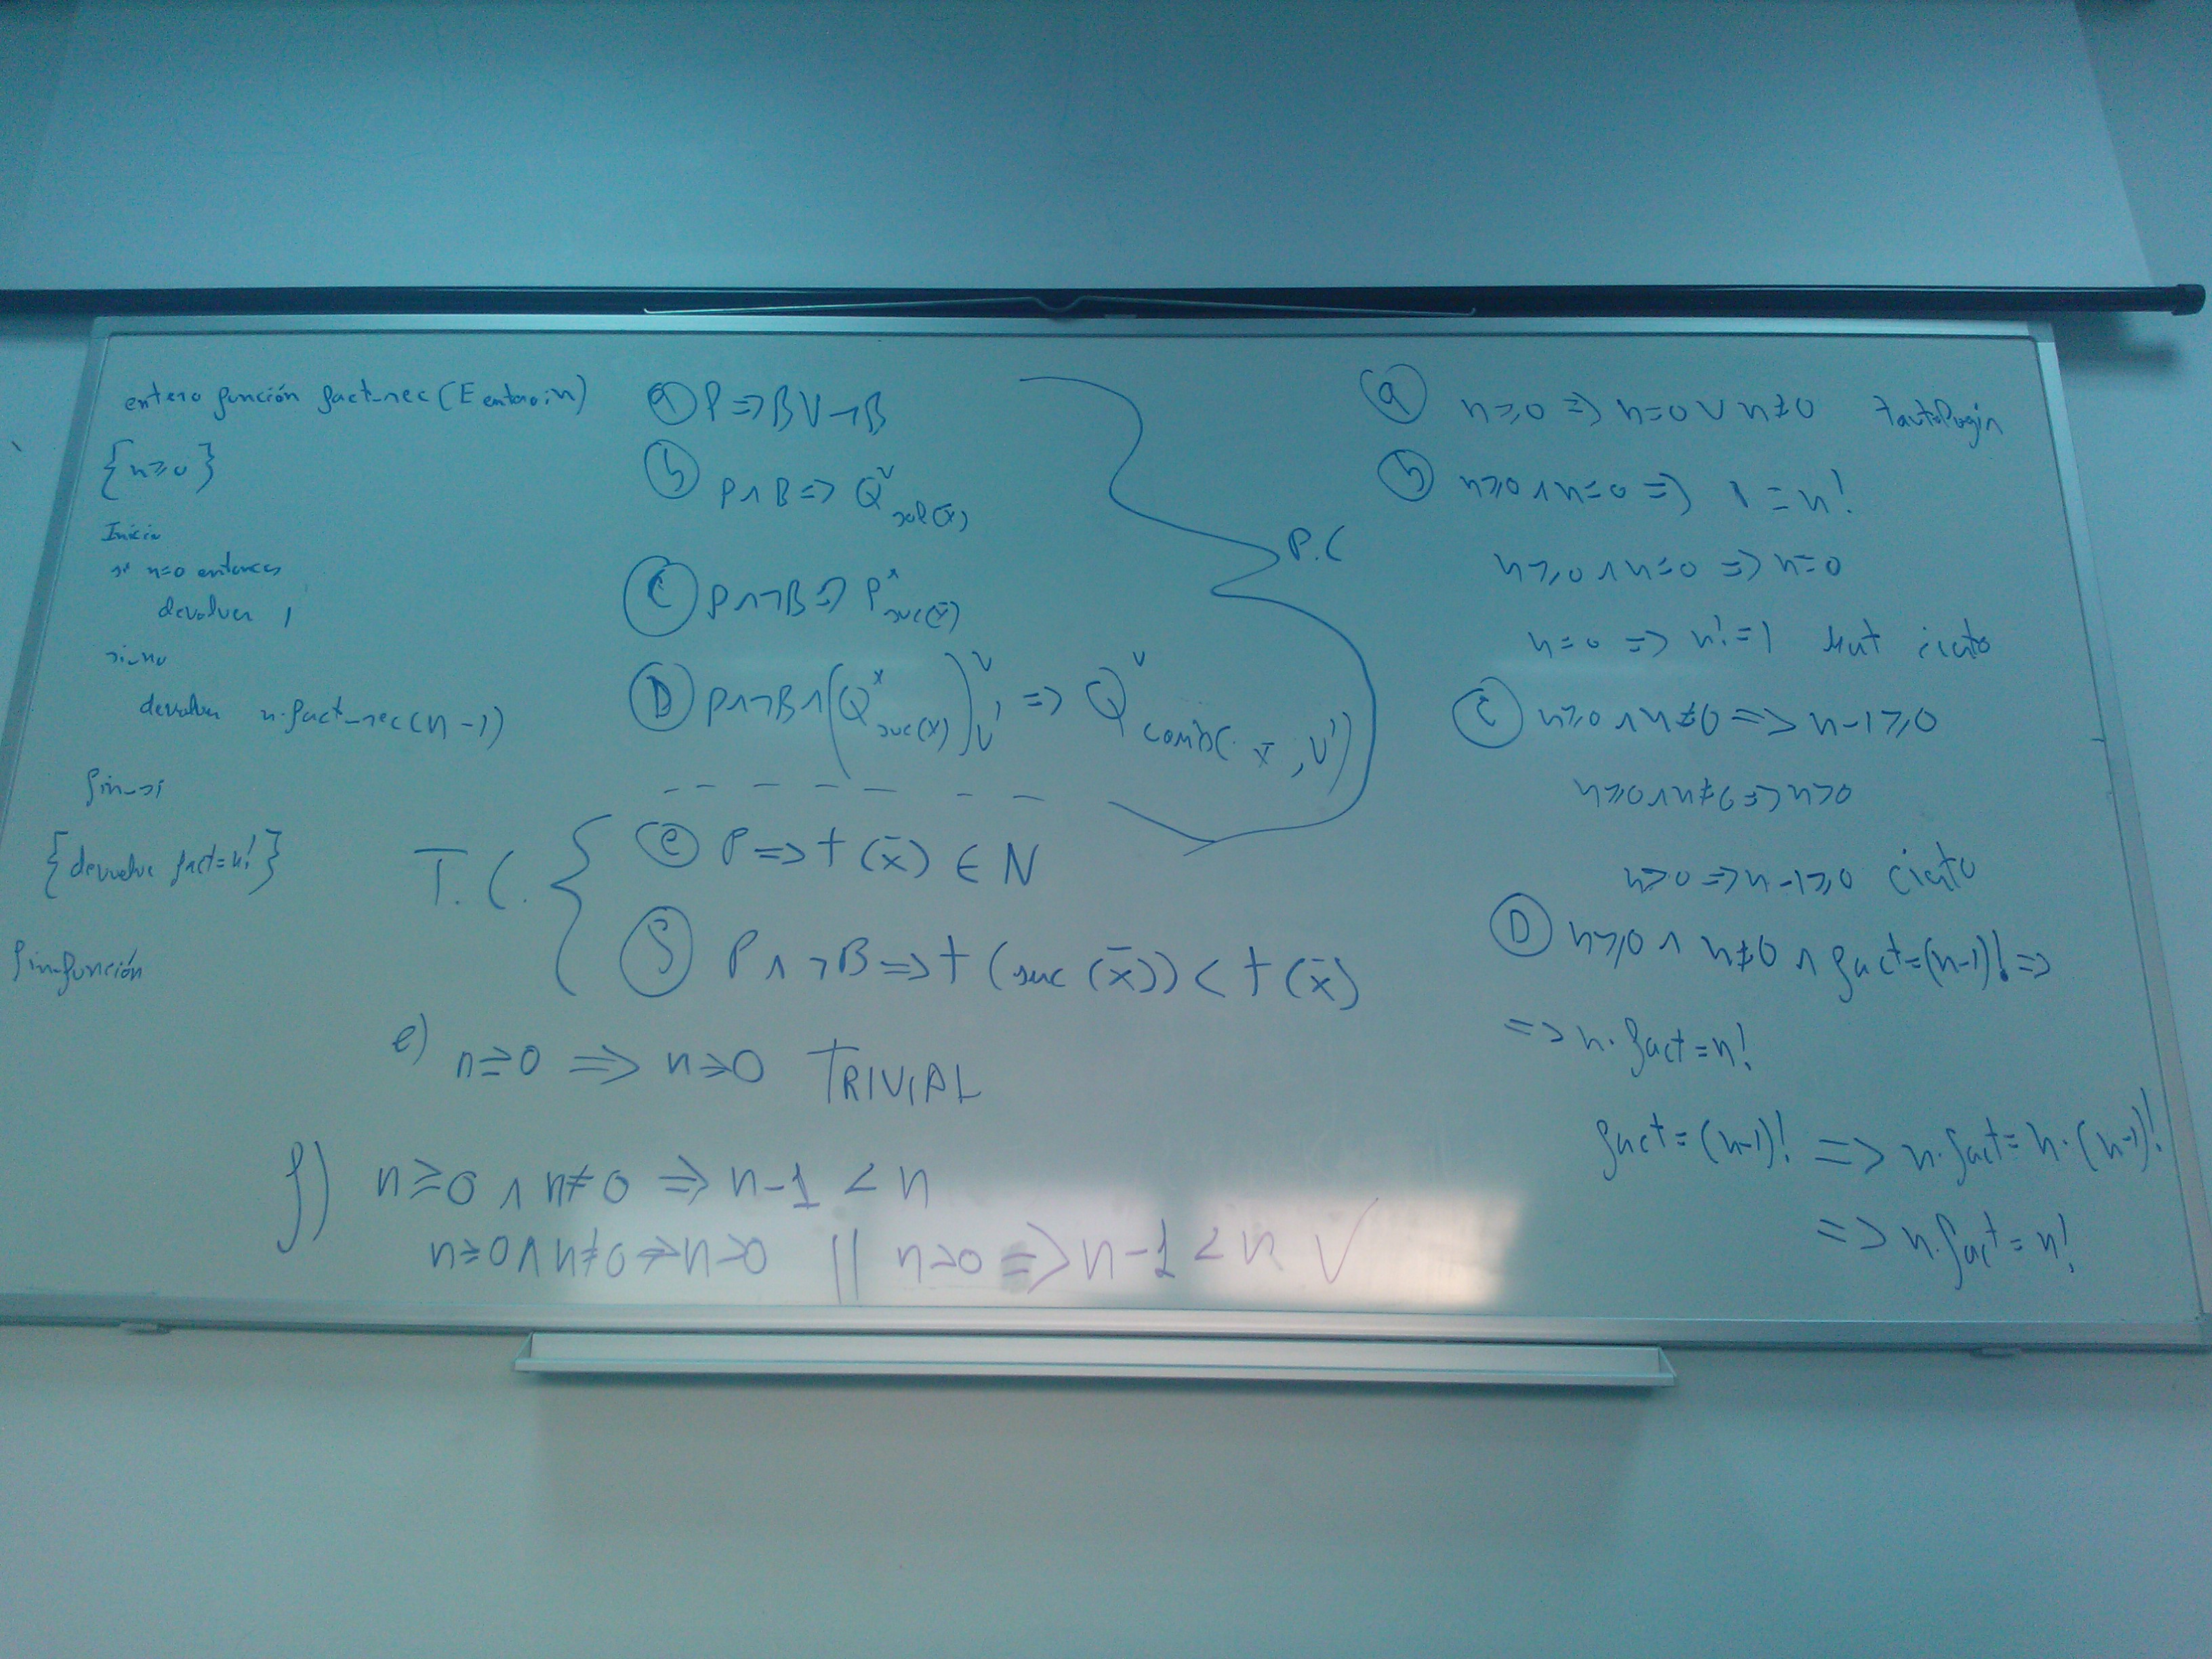 entero función fact_rec(E entero: n)
{n≥0}
Inicio
si n=0 entonces
devolver 1
si_no
devolver n·fact_rec(n-1)
fin_si
{devuelve fact=n!}
fin_función
ⓐ P => B ∨ ¬B
ⓑ P ∧ B => Q^v_sol(x̄)
Ⓒ P ∧ ¬B => P^x_suc(x̄)
Ⓓ P ∧ ¬B ∧ (Q^x_suc(x))^v_v' => Q^v_comb(x̄, v')
P.C
T.C.
ⓔ P => t(x̄) ∈ N
ⓕ P ∧ ¬B => t(suc(x̄)) < t(x̄)
e) n≥0 => n≥0 TRIVIAL
f) n≥0 ∧ n≠0 => n-1 < n
n≥0 ∧ n≠0 => n>0 || n>0 => n-1 < n √
ⓐ n≥0 => n=0 ∨ n≠0 tautología
ⓑ n≥0 ∧ n=0 => 1 = n!
n≥0 ∧ n=0 => n=0
n=0 => n!=1 cierto
Ⓒ n≥0 ∧ n≠0 => n-1≥0
n≥0 ∧ n≠0 => n>0
n>0 => n-1≥0 cierto
Ⓓ n≥0 ∧ n≠0 ∧ fact=(n-1)! =>
=> n·fact=n!
fact=(n-1)! => n·fact=n·(n-1)!
=> n·fact=n!